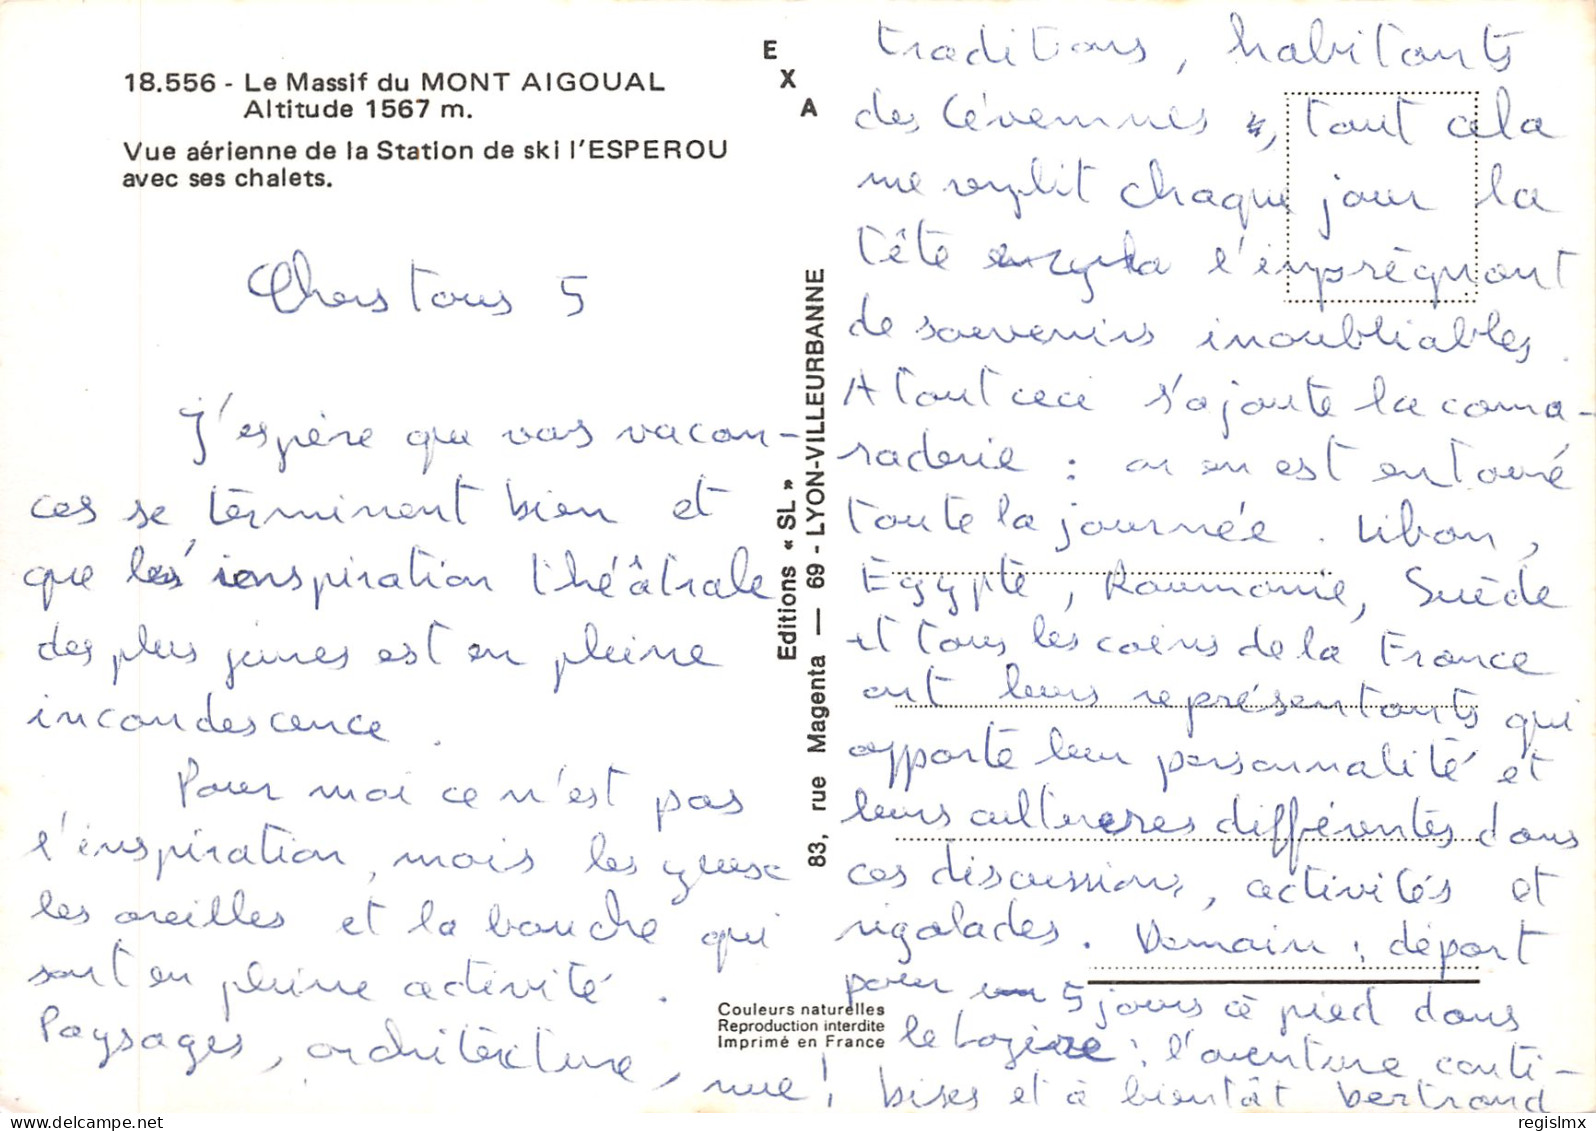 18.556 - Le Massif du MONT AIGOUAL
Altitude 1567 m.
Vue aérienne de la Station de ski l'ESPEROU
avec ses chalets.
Chers tous 5
J'espère que vos vacan-
ces se terminent bien et
que les inspiration théâtrale
des plus jeunes est en pleine
incandescence.
Pour moi ce n'est pas
l'inspiration, mais les yeux
les oreilles et la bouche qui
sont en pleine activité.
Paysages, architecture,
EXA
Editions « SL »
83, rue Magenta — 69 - LYON-VILLEURBANNE
Couleurs naturelles
Reproduction interdite
Imprimé en France
traditions, habitants
des Cévennes, tout cela
me remplit chaque jour la
tête l'imprégnant
de souvenirs inoubliables.
A tout ceci s'ajoute la cama-
raderie : on en est entouré
toute la journée. Liban,
Egypte, Roumanie, Suède
et tous les coins de la France
ont leurs représentants qui
apporte leur personnalité et
leurs cultures différentes dans
ces discussions, activités et
rigolades. Demain : départ
pour 5 jours à pied dans
le Lozère : l'aventure conti-
nue ! bises et à bientôt Bertrand
regislmx